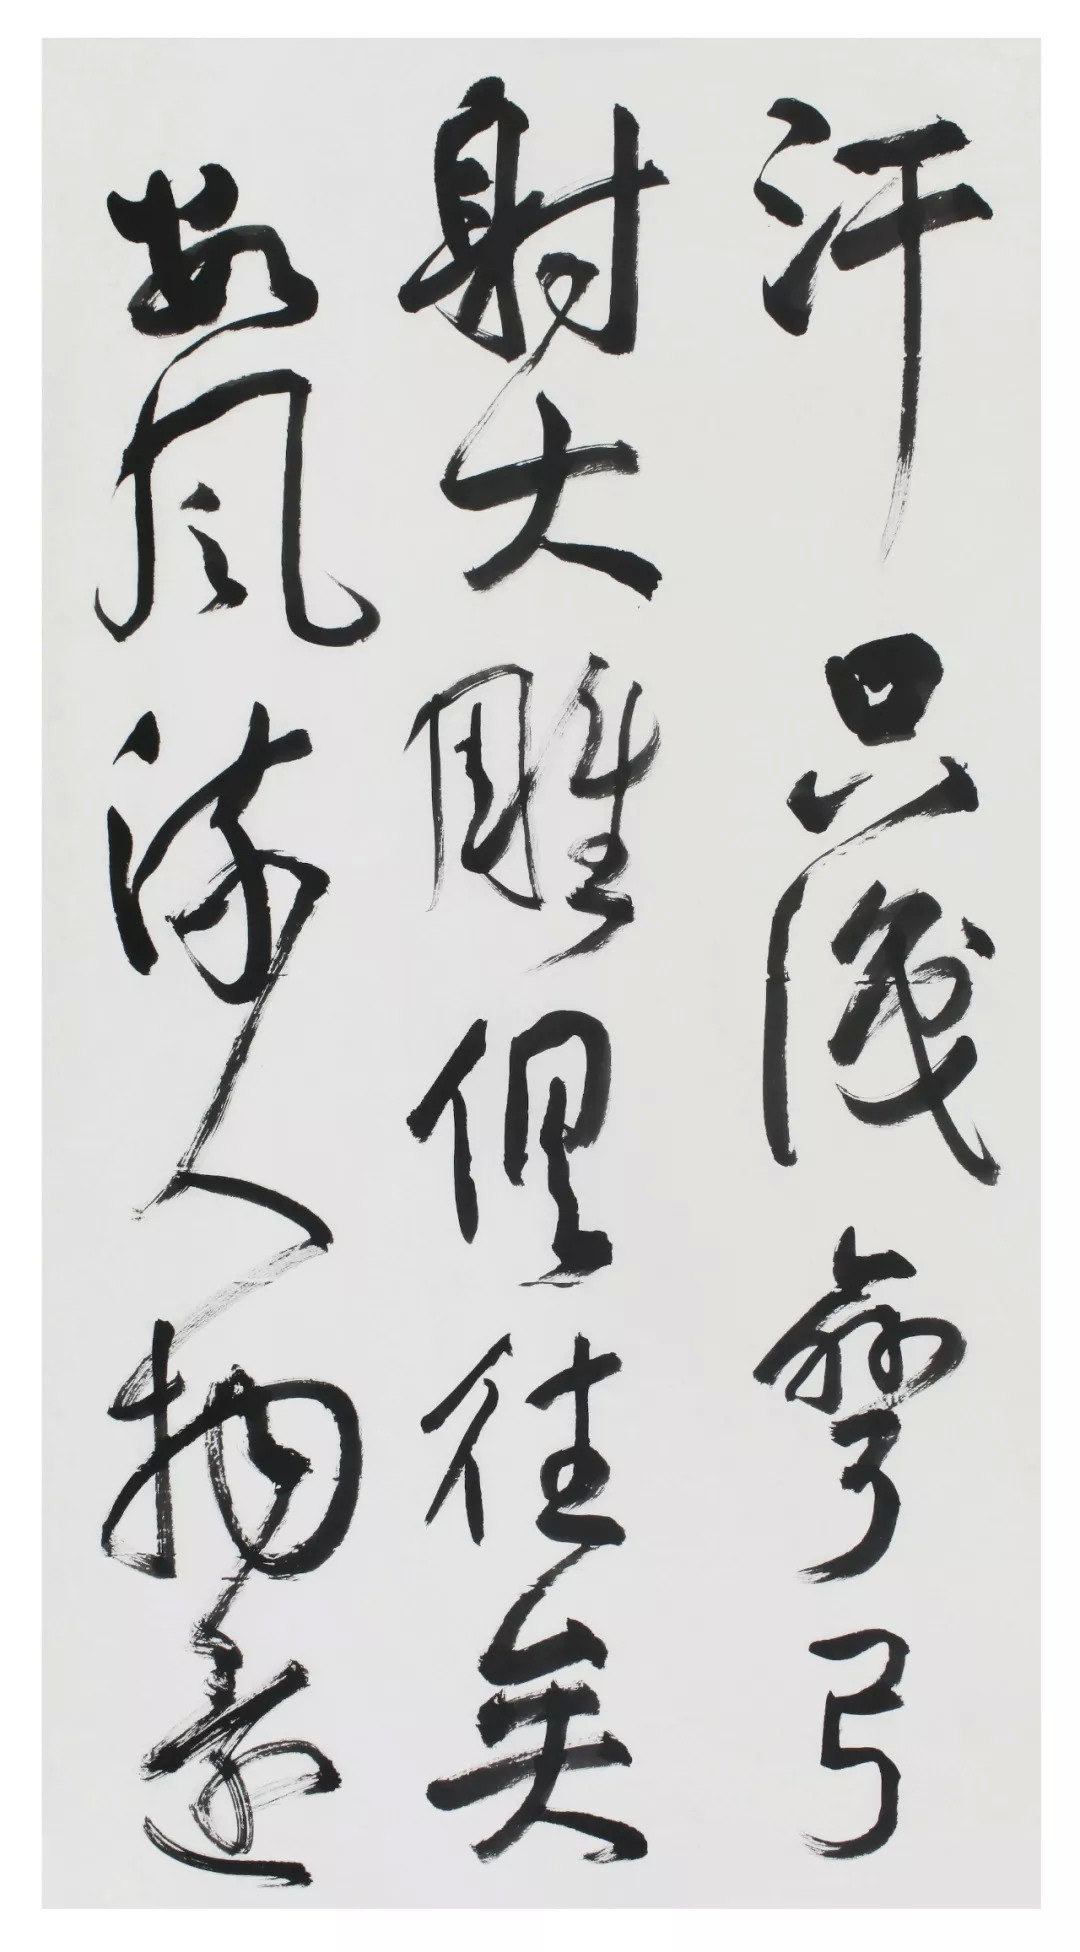 汗只识弯弓
射大雕俱往矣
数风流人物还